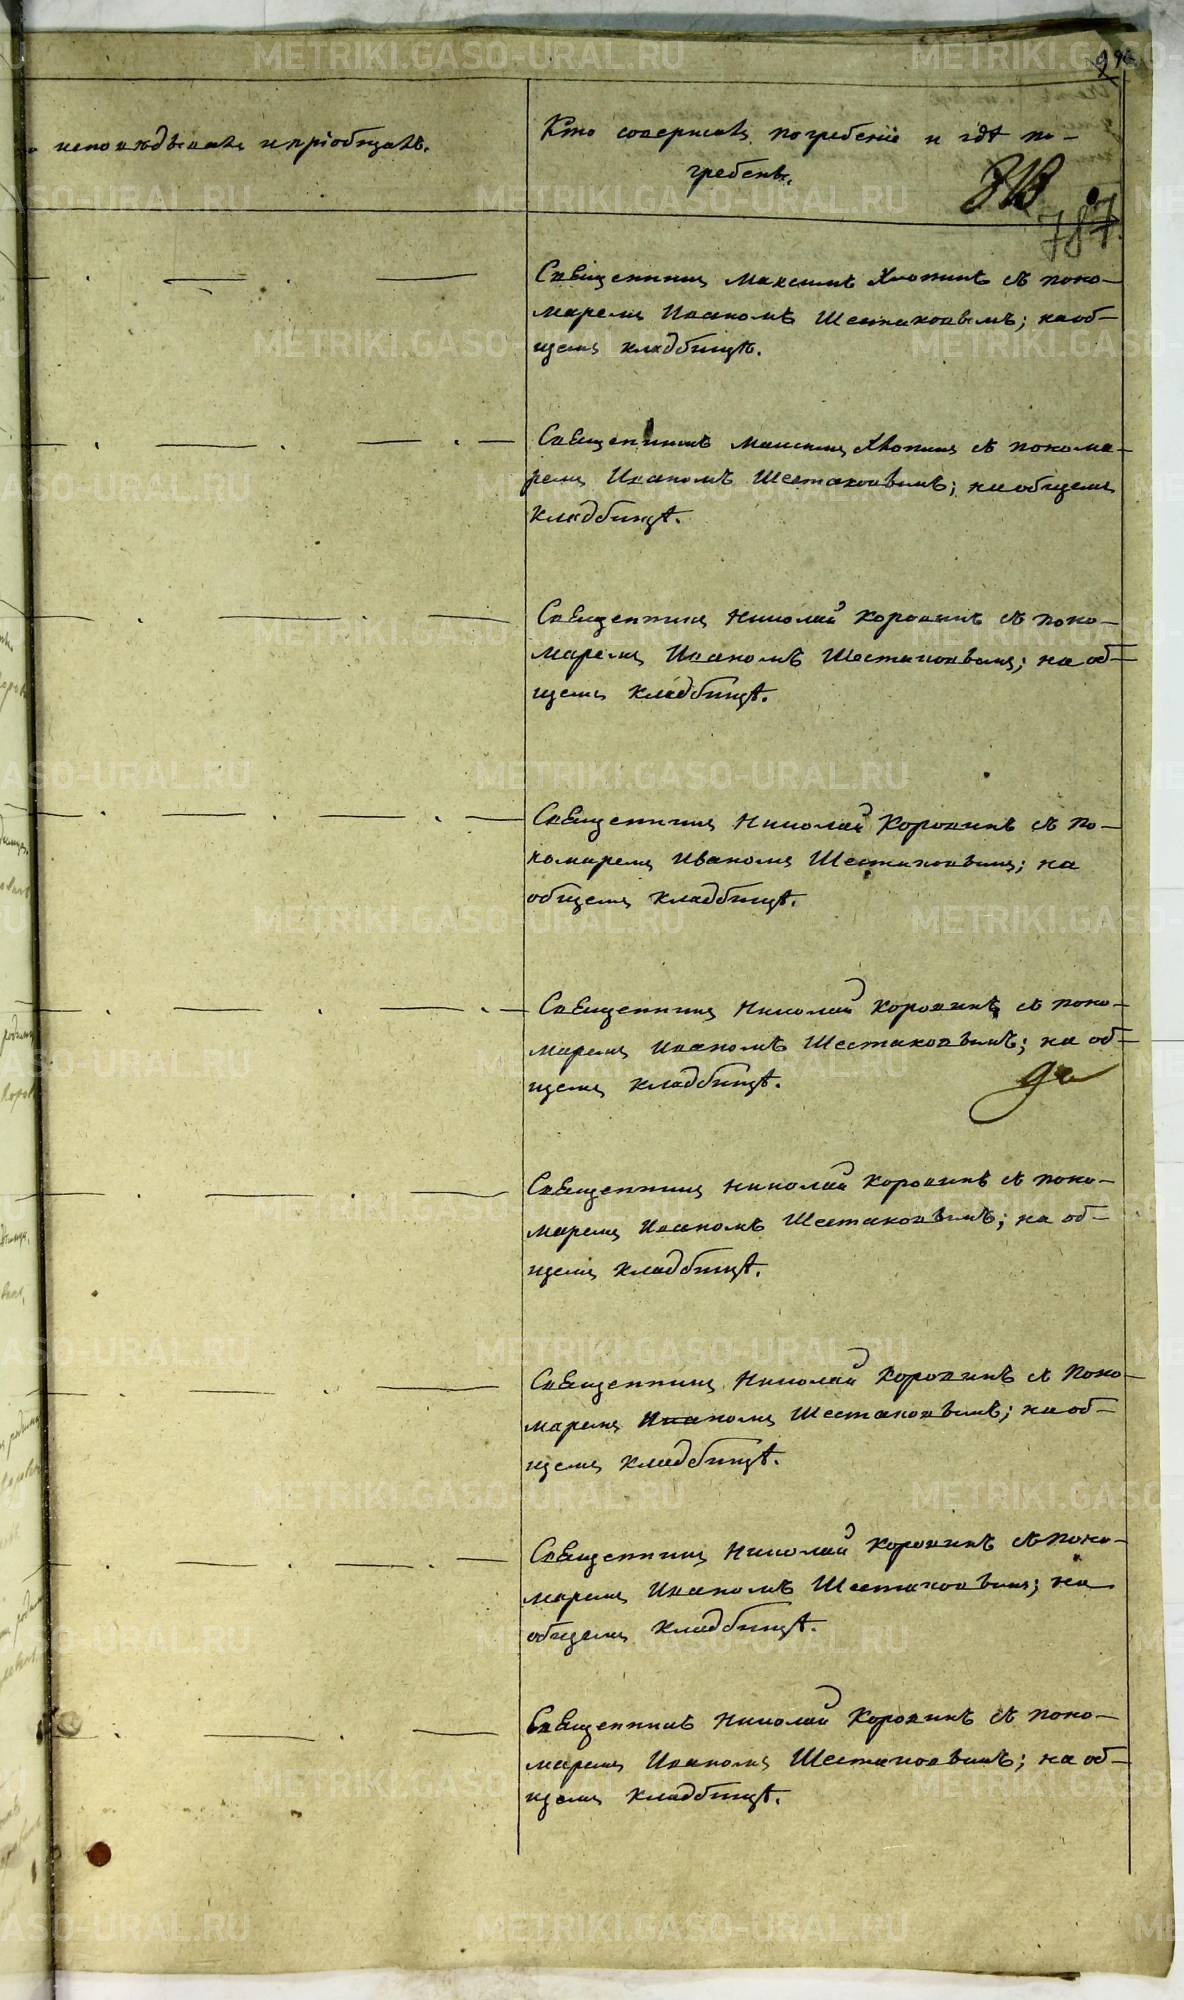 исповѣдывалъ и пріобщалъ.
Кто совершалъ погребеніе и гдѣ по-
гребенъ.
787.
Священникъ Максимъ Хлопинъ съ поно-
маремъ Иваномъ Шестаковымъ; на об-
щемъ кладбищѣ.
Священникъ Максимъ Хлопинъ съ понома-
ремъ Иваномъ Шестаковымъ; на общемъ
кладбищѣ.
Священникъ Николай Коровинъ съ поно-
маремъ Иваномъ Шестаковымъ; на об-
щемъ кладбищѣ.
Священникъ Николай Коровинъ съ по-
номаремъ Иваномъ Шестаковымъ; на
общемъ кладбищѣ.
Священникъ Николай Коровинъ съ поно-
маремъ Иваномъ Шестаковымъ; на об-
щемъ кладбищѣ.
Священникъ Николай Коровинъ съ поно-
маремъ Иваномъ Шестаковымъ; на об-
щемъ кладбищѣ.
Священникъ Николай Коровинъ съ поно-
маремъ Иваномъ Шестаковымъ; на об-
щемъ кладбищѣ.
Священникъ Николай Коровинъ съ поно-
маремъ Иваномъ Шестаковымъ; на
общемъ кладбищѣ.
Священникъ Николай Коровинъ съ поно-
маремъ Иваномъ Шестаковымъ; на об-
щемъ кладбищѣ.
METRIKI.GASO-URAL.RU